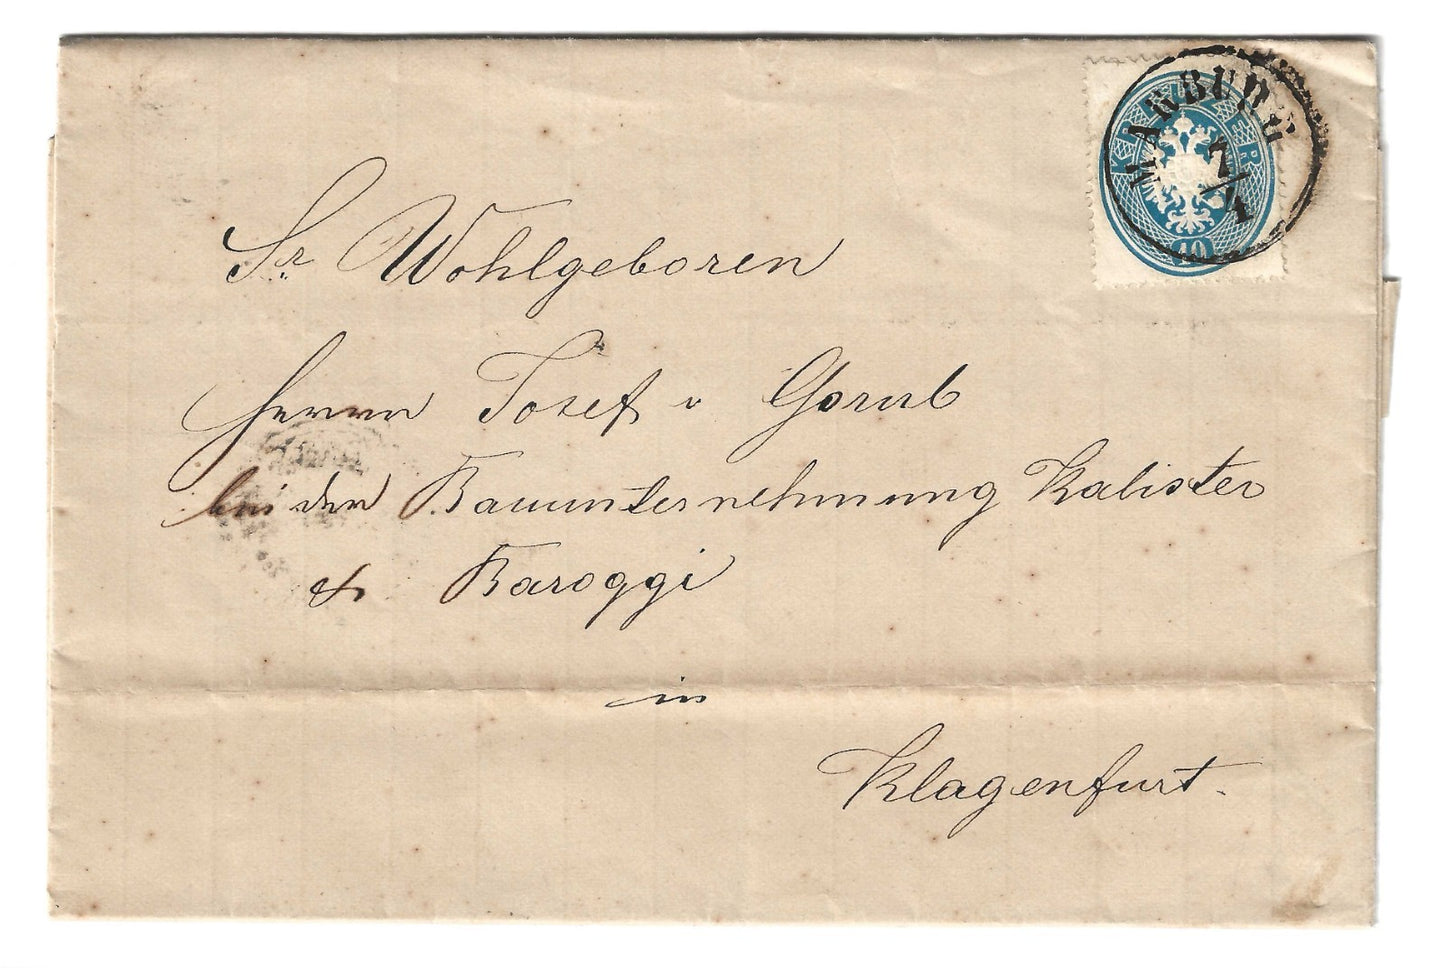 KREUZER
10
MARBURG
7/4
Sr Wohlgeboren
Herrn Josef v Gorub
bei der Bauunternehmung Kalister
& Baroggi
in
Klagenfurt.